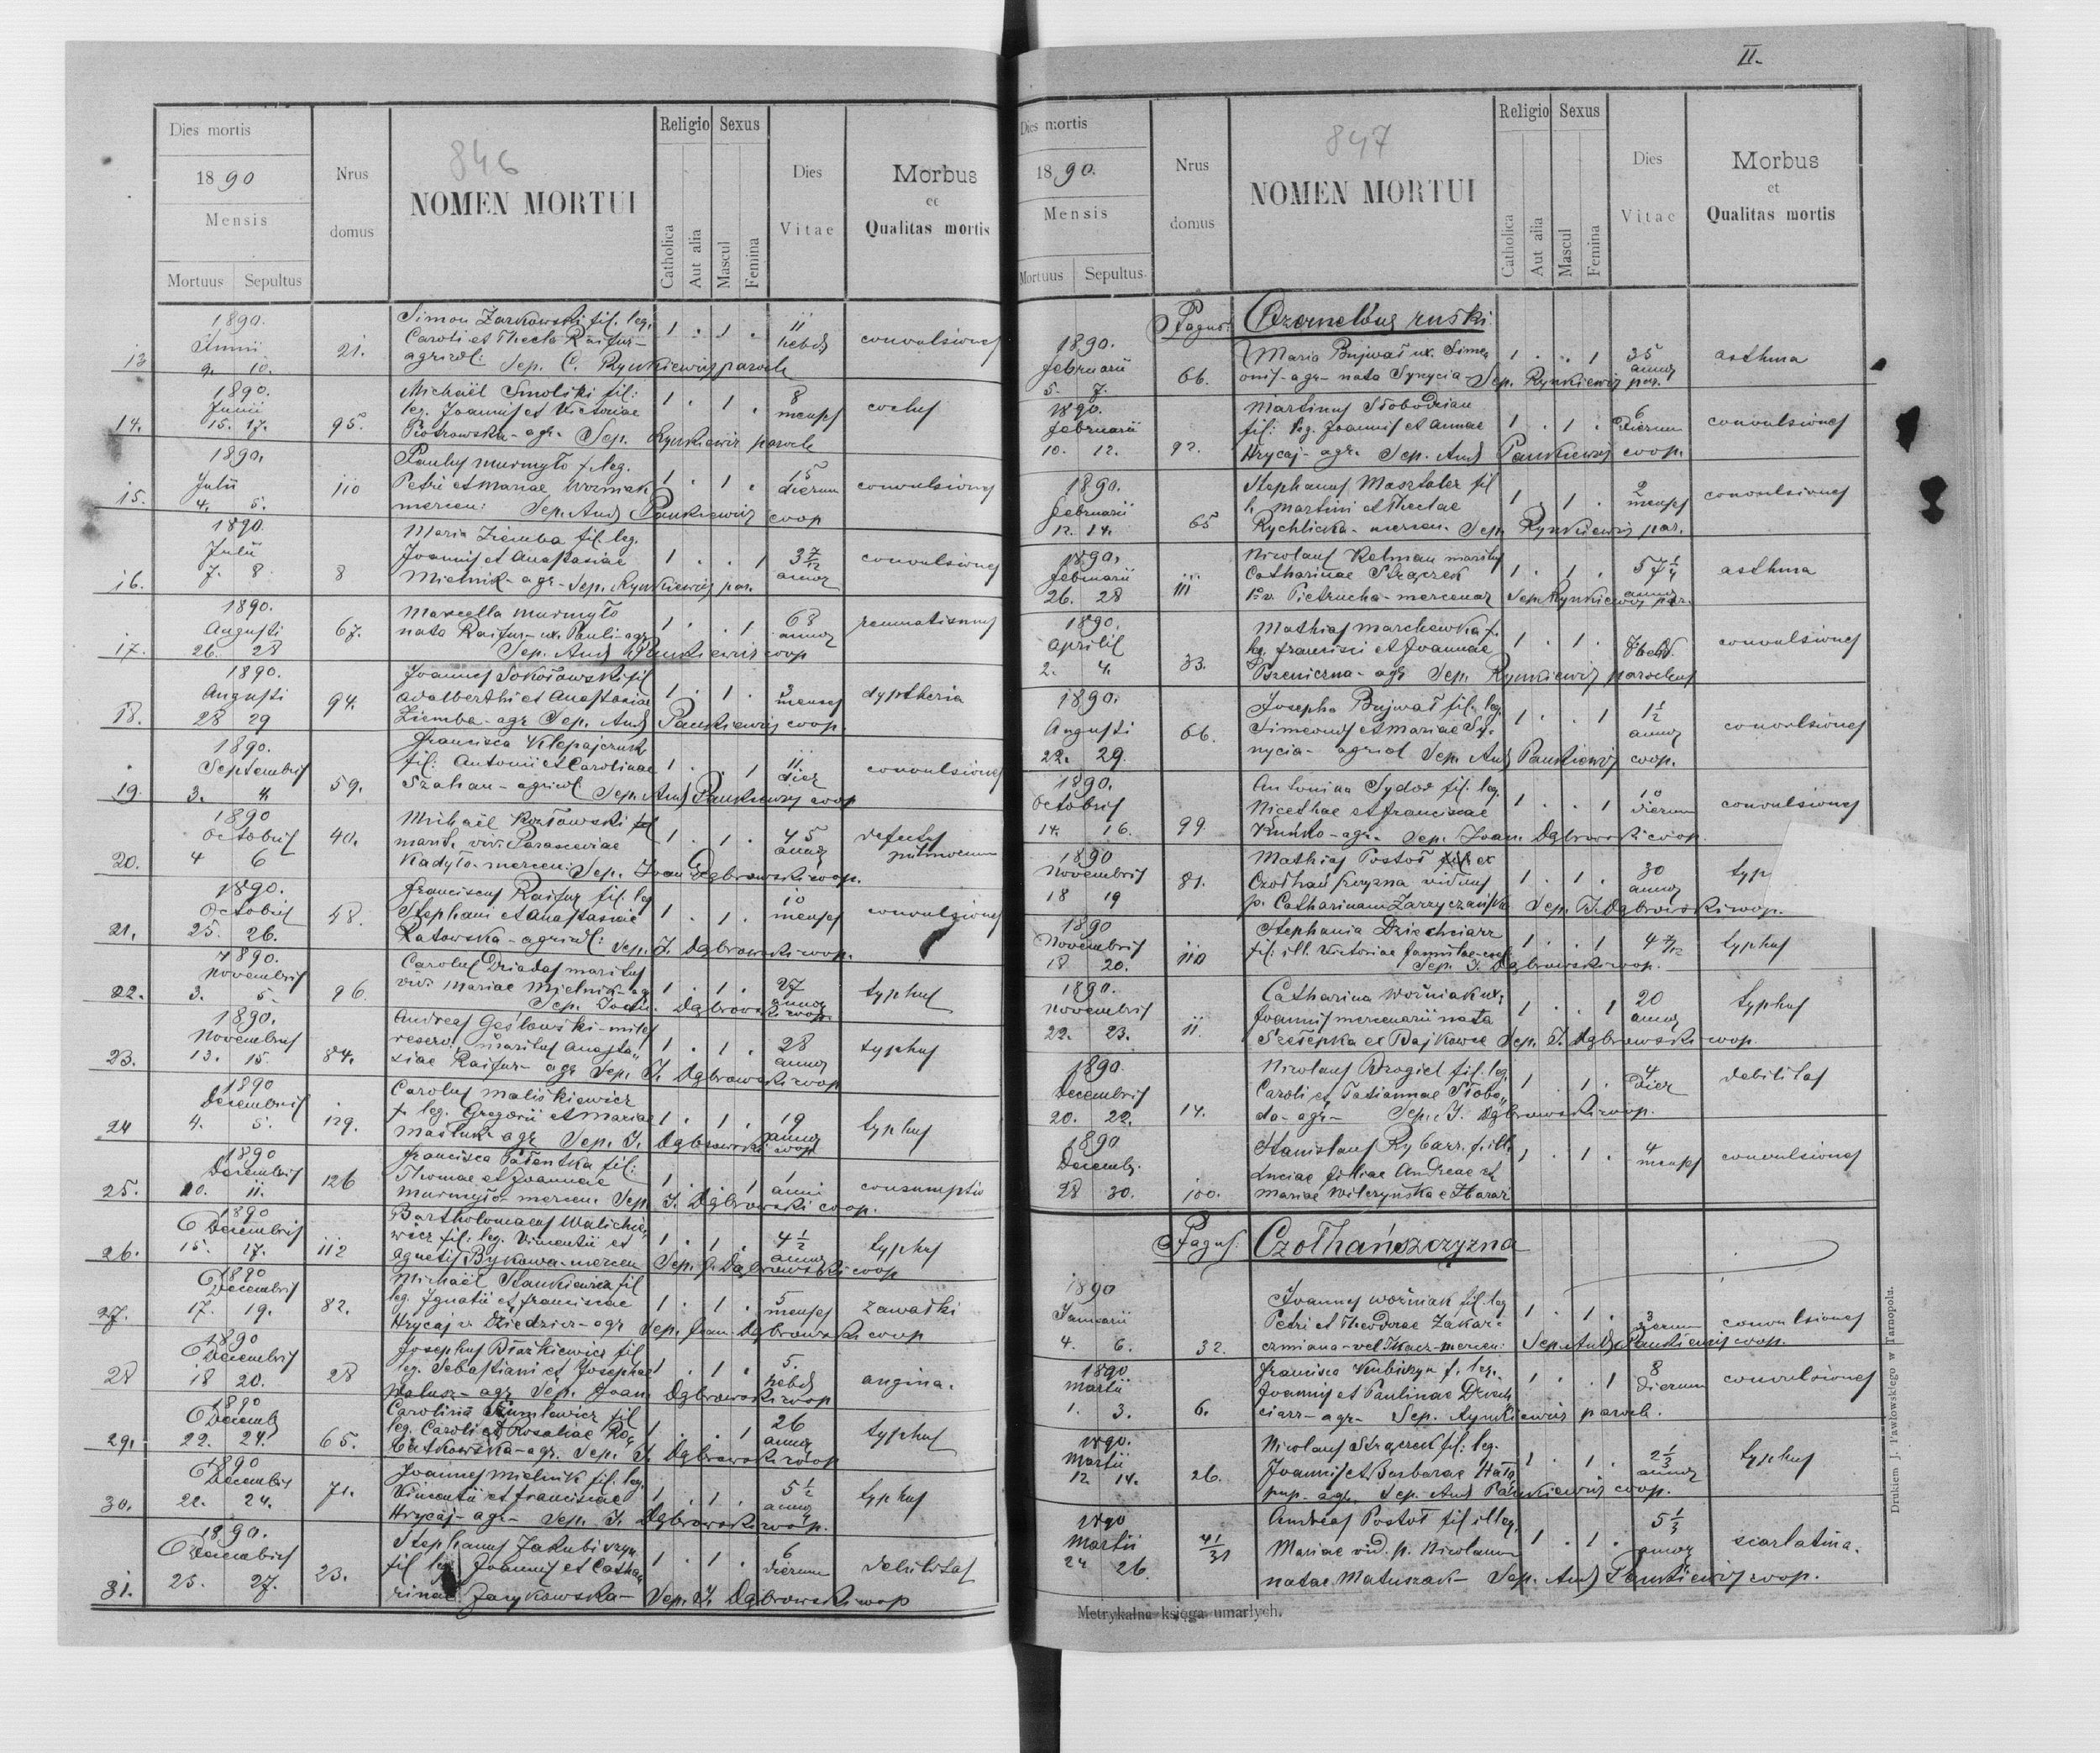 Dies mortis
1890
Mensis
Mortuus Sepultus
Nrus domus
846
NOMEN MORTUI
Religio
Catholica
Aut alia
Sexus
Mascul
Femina
Dies Vitae
Morbus
et
Qualitas mortis
1890.
Simon Zarkowski fil. leg.
13 Junii 9. 10. 21. Caroli et Thecla Raifur- 1 . 1 . 11 hebd convulsiones
agricol: Sep. C. Rynkiewicz paroch
1890. Michaël Smolski fil:
14. Junii 15. 17. 95. leg. Joannis et Victoriae 1 . 1 . 8 menses
Piotrowska-agr. Sep. Rynkiewicz paroch
1890. Paulus Murmyło f. leg.
15. Julii 4. 5. 110 Petri et Mariae Woźniak 1 . 1 . 15 dierum convulsiones
mercen: Sep. And Pankiewicz coop
1890. Maria Ziemba fil. leg.
16. Julii 7. 8 8 Joannis et Anastasiae 1 . . 1 3 7/12 annor convulsiones
Mielnik-agr-Sep. Rynkiewicz par.
1890. Marcella Murmyło
17. Augusti 26. 28 67. nata Raifur-ux. Pauli-agr 1 . . 1 68 annor reumatismus
Sep. And Pankiewicz coop
1890. Joannes Sokołowski fil
18. Augusti 28 29 94. Adalberthi et Anastasiae 1 . 1 . 3 menses dyptheria
Ziemba-agr Sep. And Pankiewicz coop.
1890. Francisca Klepajczuk
19. Septembris 3. 4. 59. fil: Antonii et Carolinae 1 . . 1 11 dier convulsiones
Szahan-agricol Sep. And Pankiewicz coop
1890 Michaël Kozłowski
20. Octobris 4 6 40. marit. viv. Parasceviae 1 . 1 . 45 annor defectus pulmonum
Kadyło-mercen: Sep. Joan Dąbrowski coop.
1890. Franciscus Raifur fil. leg
21. Octobris 25. 26. 48. Stephani et Anastasiae 1 . 1 . 10 menses convulsiones
Ratowska-agricol: Sep. J. Dąbrowski coop.
1890. Carolus Dziadas maritus
22. Novembris 3. 5. 96. viv. Mariae Mielnik-ag 1 . 1 . 27 annor typhus
Sep. Joan. Dąbrowski coop.
1890. Andreas Gęsłowski-miles
23. Novembris 13. 15. 84. reserv. maritus Anasta- 1 . 1 . 28 annor typhus
siae Raifur-agr Sep. J. Dąbrowski coop
1890 Carolus Maliśkiewicz
24 Decembris 4. 5. 129. f. leg. Gregorii et Mariae 1 . 1 . 19 annor typhus
Maśluk agr Sep. J. Dąbrowski coop
1890 Francisca Pałentka fil:
25. Decembris 10. 11. 126 Thomae et Joannae 1 . . 1 1 anni consumptio
Murmyło mercen. Sep. J. Dąbrowski coop.
1890 Bartholomaeus Walichie-
26. Decembris 15. 17. 112 wicz fil. leg. Vincentii et 1 . 1 . 4 1/2 annor typhus
Agnetis Bykowa-mercen Sep. J. Dąbrowski coop
1890 Michaël Stankiewicz fil
27. Decembris 17. 19. 82. leg. Ignatii et Franciscae 1 . 1 . 5 menses zawałki
Hrycaj v Dziedzic-agr Sep. Joan. Dąbrowski coop
1890 Josephus Błażkiewicz fil
28 Decembris 18 20. 28 leg. Sebastiani et Josephae 1 . 1 . 5. hebd angina.
Matusz-agr Sep. Joan Dąbrowski coop
1890 Carolina Szumlewicz fil
29. Decemb 22. 24. 65. leg. Caroli et Rosaliae Ro- 1 . . 1 26 annor typhus
Sep. J. Dąbrowski coop
1890 Joannes Mielnik fil. leg.
30. Decembris 22. 24. 71. Vincentii et Franciscae 1 . 1 . 5 1/2 annor typhus
Hrycaj-agr-Sep. J. Dąbrowski coop.
1890. Stephanus Jakubiszyn
31. Decembris 25. 27. 23. fil leg. Joannis et Catha- 1 . 1 . 6 dierum debilitas
rinae Jarykowska-Sep. J. Dąbrowski coop
II.
Dies mortis
1890.
Mensis
Mortuus Sepultus
Nrus domus
847
NOMEN MORTUI
Religio
Catholica
Aut alia
Sexus
Mascul
Femina
Dies Vitae
Morbus
et
Qualitas mortis
Pagus: Czernelów ruski.
1890. Maria Bujwał ux. Sime-
Februarii 5. 7. 66. onis-agr-nata Synycia-Sep. Rynkiewicz par. 1 . . 1 35 annor asthma
1890. Martinus Słobodzian
Februarii 10. 12. 92. fil: leg. Joannis et Annae 1 . 1 . 6 dierum convulsiones
Hrycaj-agr. Sep. And Pankiewicz coop.
1890. Stephanus Masztaler fil
Februarii 12. 14. 65 l. Martini et Theclae 1 . 1 . 2 menses convulsiones
Rychlicka-mercen. Sep. Rynkiewicz par.
1890. Nicolaus Retman maritus
Februarii 26. 28 111 Catharinae Strączek 1 . 1 . 57 1/4 annor asthma
1o v. Pietrucha-mercenar Sep. Rynkiewicz par.
1890. Mathias Marchewka f.
Aprilis 2. 4. 33. leg. Francisci et Joannae 1 . 1 . 7 hebd. convulsiones
Pszeniczna-agr Sep. Rynkiewicz parochus
1890. Josepha Bujwał fil. leg.
Augusti 22. 29. 66. Simeonis et Mariae Sy- 1 . . 1 1 1/2 annor convulsiones
nycia-agricol Sep. And Pankiewicz coop.
1890. Antonina Sydor fil. leg.
Octobris 14. 16. 99. Nicethae et Franciscae 1 . . 1 10 dierum convulsiones
Kuńko-agr. Sep. Joan. Dąbrowski coop.
1890 Mathias Postoł ex
Novembris 18 19 81. Czołhańszczyzna viduus 1 . 1 . 30 annor typ
p. Catharinam Zarzyczańska Sep. J. Dąbrowski coop.
1890 Stephania Dziechciarz
Novembris 18 20. 110 fil: ill. Victoriae famulae 1 . . 1 4 7/12 typhus
Sep. J. Dąbrowski coop.
1890. Catharina Woźniak ux.
Novembris 22. 23. 11. Joannis mercenarii nata 1 . . 1 20 annor typhus
Szełepka ex Bajkowce Sep. J. Dąbrowski coop.
1890. Nicolaus Rogiel fil. leg.
Decembris 20. 22. 14. Caroli et Tatiannae Słobo- 1 . 1 . 4 dier debilitas
da-agr-Sep. J. Dąbrowski coop.
1890 Stanislaus Rybarz. f. ill.
Decemb. 28 30. 100. Luciae filiae Andreae et 1 . 1 . 4 menses convulsiones
Mariae Wilczyńska e Zbaraż
Pagus: Czołhańszczyzna
1890 Joannes Woźniak fil. leg
Januarii 4. 6. 32. Petri et Theodorae Zakar- 1 . 1 . 3 dierum convulsiones
czmiana-vel Tkacz-mercen: Sep. And Pankiewicz coop.
1890 Francisca Kubiszyn f. leg.
Martii 1. 3. 6. Joannis et Paulinae Dziech- 1 . . 1 8 dierum convulsiones
ciarz-agr-Sep. Rynkiewicz paroch.
1890. Nicolaus Strączek fil: leg.
Martii 12. 14. 26. Joannis et Barbarae Hała- 1 . 1 . 2 1/3 annor typhus
pup-agr. Sep. And Pankiewicz coop.
1890 Andreas Postoł fil illeg.
Martii 24 26. 41/31 Mariae vid. p. Nicolaum 1 . 1 . 5 1/3 annor scarlatina.
natae Matuszak-Sep. And Pankiewicz coop.
Metrykalna księga umarłych.
Drukiem J. Pawłowskiego w Tarnopolu.